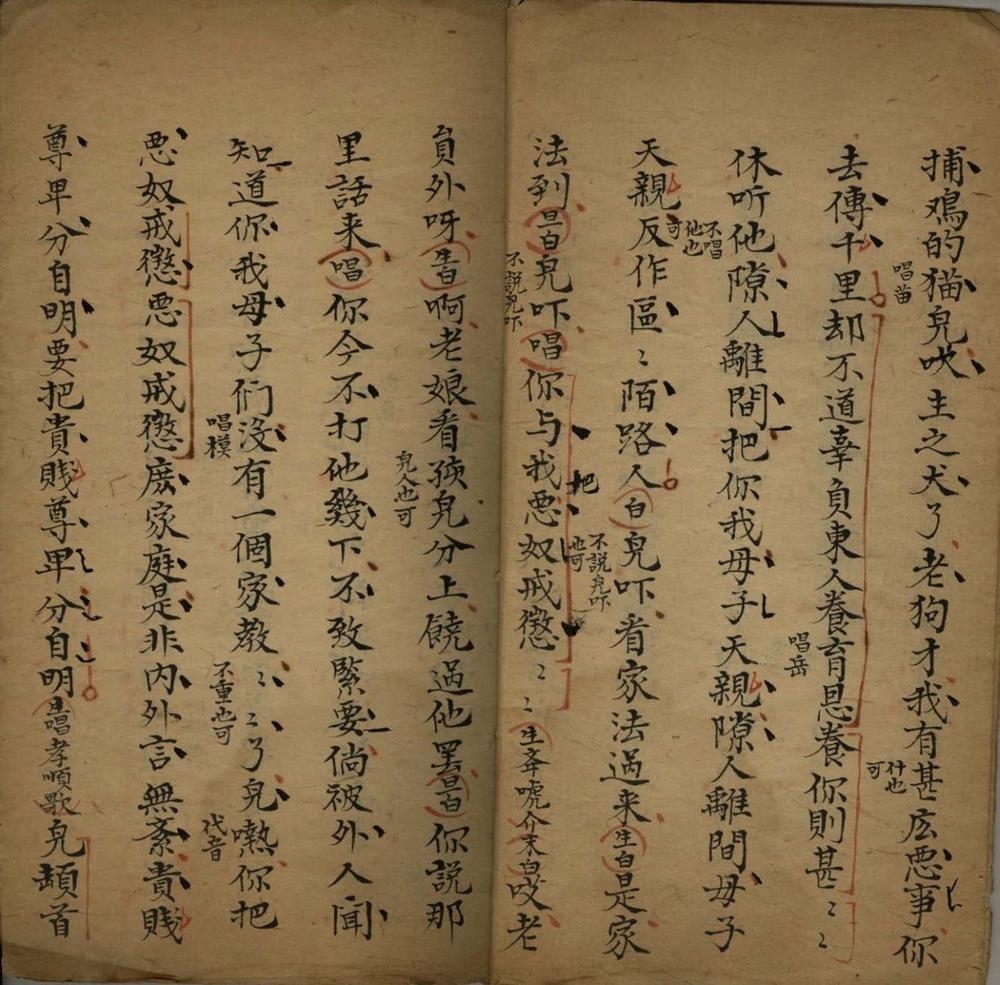 捕鸡的猫皃唱苗吠主之犬了老狗才我有甚庅什也可悪事你
去傳千里却不道辜負東人養育唱岳恩養你則甚〻〻
休听他不唱他也可隙人離間把你我母子天親隙人離間母子
天親反作區〻陌路人白皃吓不説皃吓也可看家法過来生白是家
法到旦白皃吓不説皃吓唱你与我把悪奴戒懲〻〻生奔唬介末白哎老
員外呀生白啊老娘看孩皃皃人也可分上饒過他罢旦白你說那
里話来唱你今不打他幾下不致緊要倘被外人聞
知道你我母子們沒唱模有一個家教〻〻不重也可了皃嘫代音你把
悪奴戒懲悪奴戒懲庻家庭是非内外言無紊貴賤
尊卑分自明要把貴賤尊卑分自明生唱孝順歌皃頶首